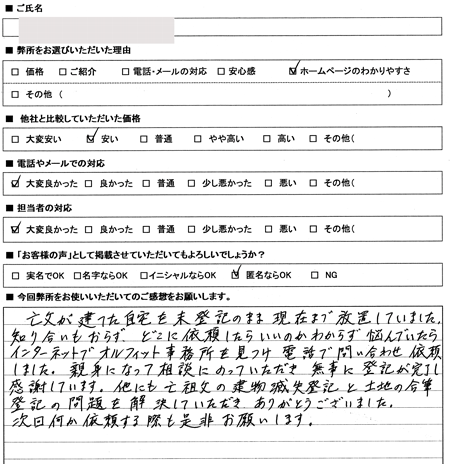 ■ ご氏名
■ 弊所をお選びいただいた理由
□ 価格 □ご紹介 □電話・メールの対応 □安心感 ☑ホームページのわかりやすさ
□ その他( )
■ 他社と比較していただいた価格
□ 大変安い ☑ 安い □ 普通 □ やや高い □ 高い □ その他(
■ 電話やメールでの対応
☑ 大変良かった □ 良かった □ 普通 □ 少し悪かった □ 悪い □ その他(
■ 担当者の対応
☑ 大変良かった □ 良かった □ 普通 □ 少し悪かった □ 悪い □ その他(
■ 「お客様の声」として掲載させていただいてもよろしいでしょうか?
□ 実名でOK □名字ならOK □イニシャルならOK ☑ 匿名ならOK □ NG
■ 今回弊所をお使いいただいてのご感想をお願いします。
亡父が建てた自宅を未登記のまま現在まで放置していました。
知り合いもおらず、どこに依頼したらいいのかわからず悩んでいたら
インターネットでオルフィット事務所を見つけ電話で問い合わせ依頼
しました。親身になって相談にのっていただき無事に登記が完了し
感謝しています。他にも亡祖父の建物滅失登記と土地の合筆
登記の問題を解決していただきありがとうございました。
次回何か依頼する際も是非お願いします。